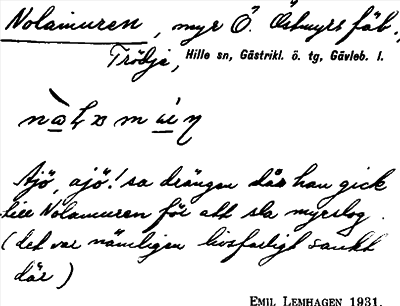 Nolamuren, myr Ö. Östmyrs fäb.,
Trödje, Hille sn, Gästrikl. ö. tg, Gävleb. l.
Ajö, ajö! sa drängen då han gick
till Nolamuren för att sla myrslog.
(det var nämligen livsfarligt sankt
där)
EMIL LEMHAGEN 1931.